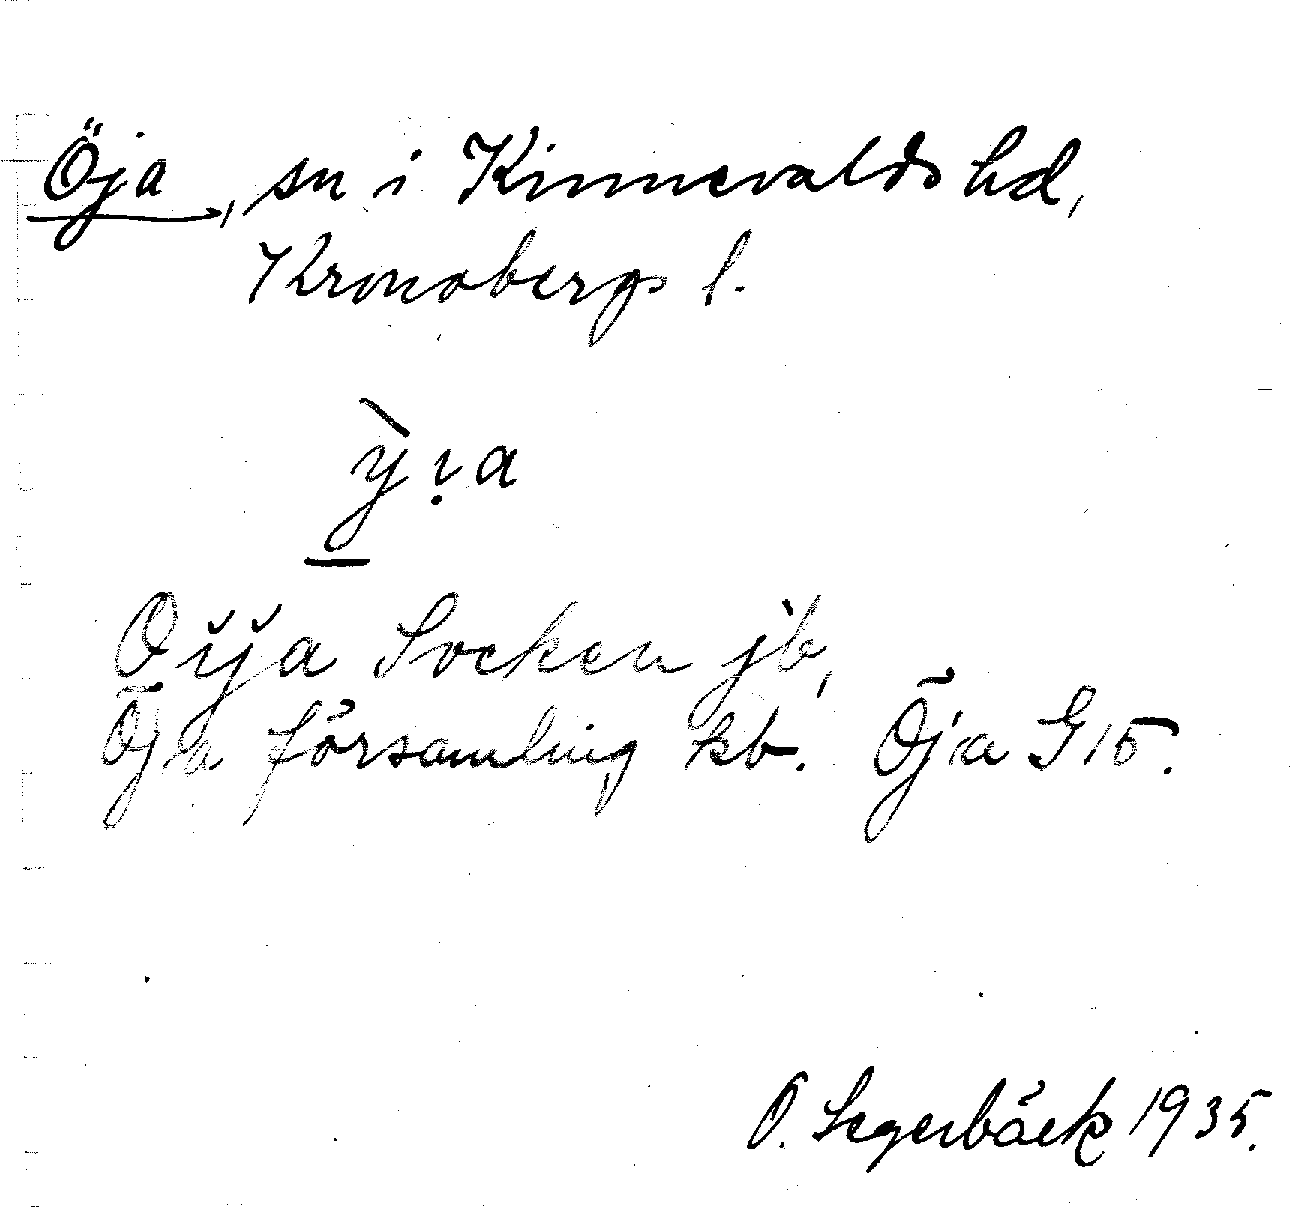 Öja, sn i Kinnevalds hd,
Kronobergs l.
ỳı̣a
Oÿja Socken jb,
Öja församling kb. Öja G15.
O. Segerbäck 1935.